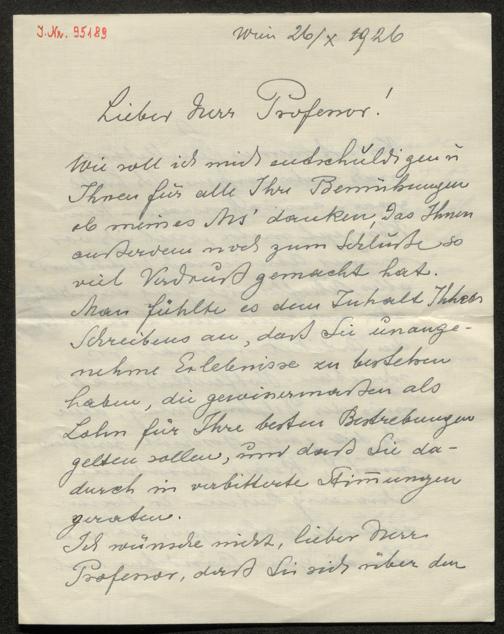 J.Nr. 95189
Wien 26/X 1926
Lieber Herr Professor!
Wie soll ich mich entschuldigen u
Ihnen für alle Ihre Bemühungen
ob meines Ms' danken, das Ihnen
außerdem noch zum Schluße so
viel Verdruß gemacht hat.
Man fühlte es dem Inhalt Ihres
Schreibens an, daß Sie unange-
nehme Erlebnisse zu bestehen
haben, die gewissermaßen als
Lohn für Ihre besten Bestrebungen
gelten sollen, und daß Sie da-
durch in verbitterte Stimmungen
geraten.
Ich wünsche nicht, lieber Herr
Professor, daß Sie sich über den